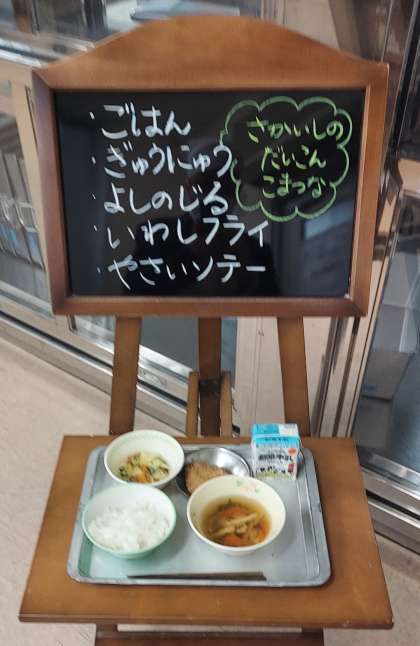 ・ごはん
・ぎゅうにゅう
・よしのじる
・いわしフライ
・やさいソテー
さかいしの
だいこん
こまつな